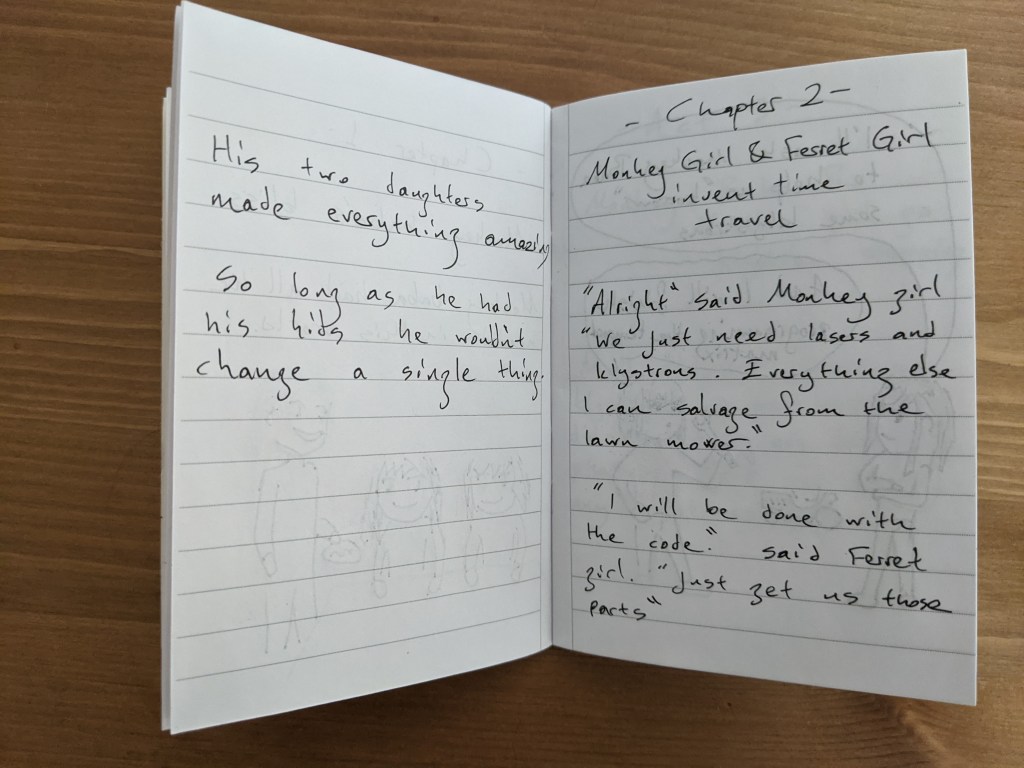 His two daughters
made everything amazing
So long as he had
his kids he wouldn't
change a single thing.
- Chapter 2 -
Monkey Girl & Ferret Girl
invent time
travel
"Alright" said Monkey girl
"we just need lasers and
klystrons. Everything else
I can salvage from the
lawn mower."
"I will be done with
the code." said Ferret
girl. "Just get us those
parts"